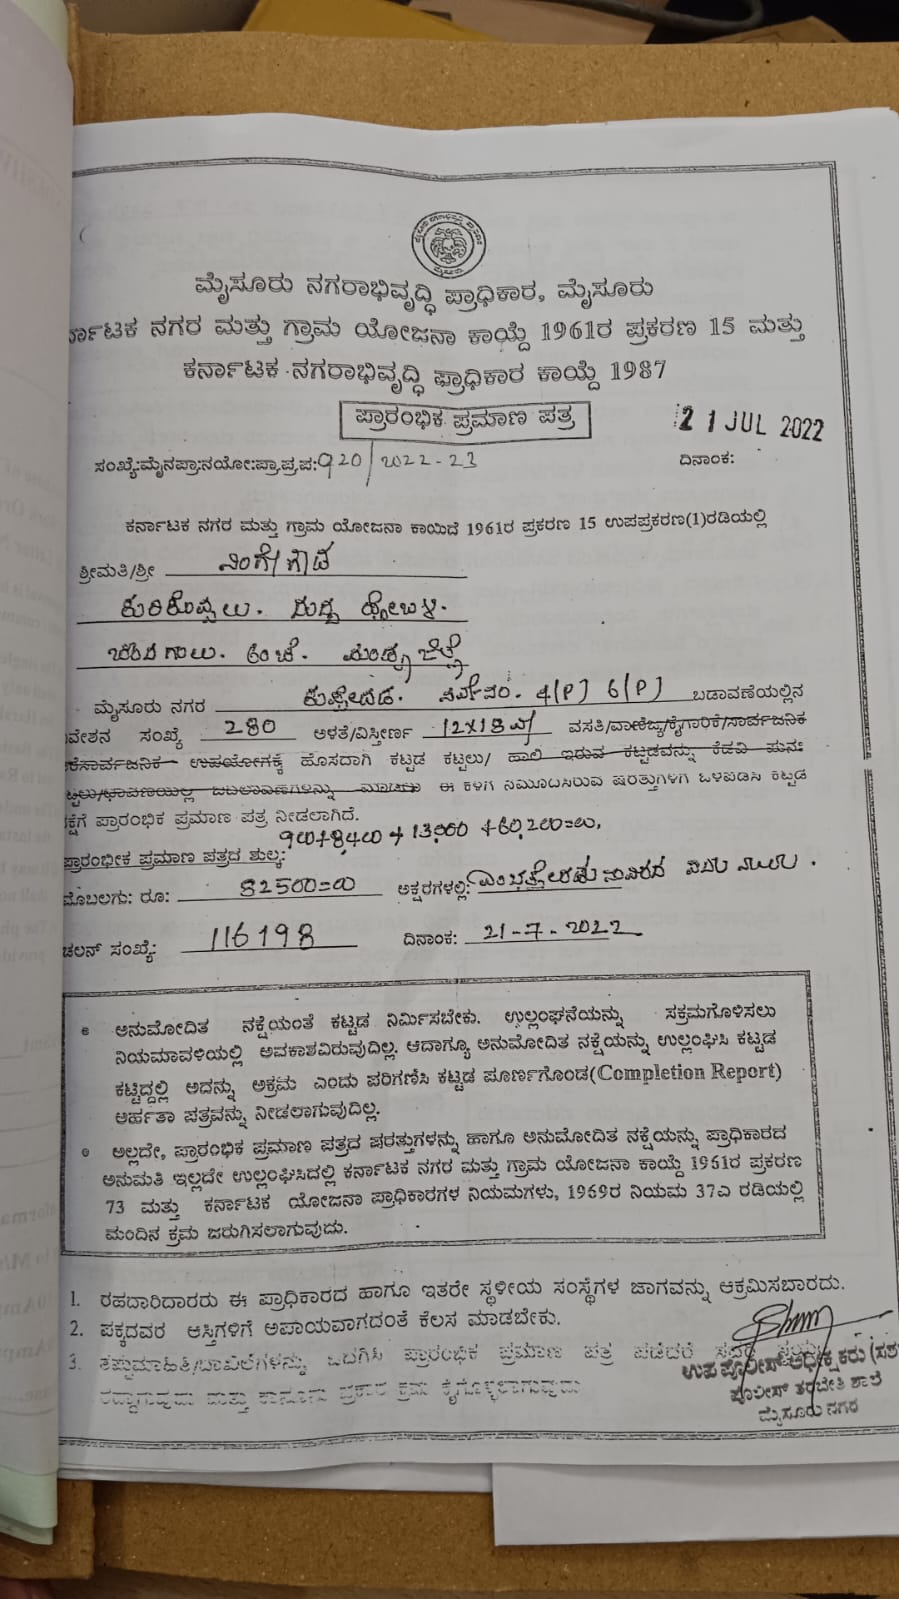 ಮೈಸೂರು ನಗರಾಭಿವೃದ್ಧಿ ಪ್ರಾಧಿಕಾರ, ಮೈಸೂರು
ರ್ನಾಟಕ ನಗರ ಮತ್ತು ಗ್ರಾಮ ಯೋಜನಾ ಕಾಯ್ದೆ 1961ರ ಪ್ರಕರಣ 15 ಮತ್ತು
ಕರ್ನಾಟಕ ನಗರಾಭಿವೃದ್ಧಿ ಪ್ರಾಧಿಕಾರ ಕಾಯ್ದೆ 1987
ಪ್ರಾರಂಭಿಕ ಪ್ರಮಾಣ ಪತ್ರ
21 JUL 2022
ಸಂಖ್ಯೆ:ಮೈನಪ್ರಾ:ನಯೋ:ಪ್ರಾ.ಪ್ರ.ಪ: 920/2022-23 ದಿನಾಂಕ:
ಕರ್ನಾಟಕ ನಗರ ಮತ್ತು ಗ್ರಾಮ ಯೋಜನಾ ಕಾಯಿದೆ 1961ರ ಪ್ರಕರಣ 15 ಉಪಪ್ರಕರಣ(1)ರಡಿಯಲ್ಲಿ
ಶ್ರೀಮತಿ/ಶ್ರೀ ನಿಂಗೇಗೌಡ
ಮಂಡ್ಯ ಜಿಲ್ಲೆ
ಮೈಸೂರು ನಗರ ಸರ್ವೆ ನಂ. 4(P) 6(P) ಬಡಾವಣೆಯಲ್ಲಿನ
ವೇಶನ ಸಂಖ್ಯೆ 280 ಅಳತೆ/ವಿಸ್ತೀರ್ಣ 12x18 ಮೀ ವಸತಿ/ವಾಣಿಜ್ಯ/ಕೈಗಾರಿಕೆ/ಸಾರ್ವಜನಿಕ
ರೆಸಾರ್ವಜನಿಕ ಉಪಯೋಗಕ್ಕೆ ಹೊಸದಾಗಿ ಕಟ್ಟಡ ಕಟ್ಟಲು/ ಹಾಲಿ ಇರುವ ಕಟ್ಟಡವನ್ನು ಕೆಡವಿ ಪುನಃ
ಟ್ಟಲು/ಛಾವಣಿಯಲ್ಲಿ ಬದಲಾವಣೆಗಳನ್ನು ಮಾಡಲು ಈ ಕೆಳಗೆ ನಮೂದಿಸಿರುವ ಷರತ್ತುಗಳಿಗೆ ಒಳಪಡಿಸಿ ಕಟ್ಟಡ
ಕ್ಷೆಗೆ ಪ್ರಾರಂಭಿಕ ಪ್ರಮಾಣ ಪತ್ರ ನೀಡಲಾಗಿದೆ.
ಪ್ರಾರಂಭೀಕ ಪ್ರಮಾಣ ಪತ್ರದ ಶುಲ್ಕ:
ಮೊಬಲಗು: ರೂ: 82500=00 ಅಕ್ಷರಗಳಲ್ಲಿ: ಎಂಭತ್ತೇರಡು ಸಾವಿರದ ಐದು ನೂರು.
ಚಲನ್ ಸಂಖ್ಯೆ: 116198 ದಿನಾಂಕ: 21-7-2022
ಅನುಮೋದಿತ ನಕ್ಷೆಯಂತೆ ಕಟ್ಟಡ ನಿರ್ಮಿಸಬೇಕು. ಉಲ್ಲಂಘನೆಯನ್ನು ಸಕ್ರಮಗೊಳಿಸಲು
ನಿಯಮಾವಳಿಯಲ್ಲಿ ಅವಕಾಶವಿರುವುದಿಲ್ಲ. ಆದಾಗ್ಯೂ ಅನುಮೋದಿತ ನಕ್ಷೆಯನ್ನು ಉಲ್ಲಂಘಿಸಿ ಕಟ್ಟಡ
ಕಟ್ಟಿದ್ದಲ್ಲಿ ಅದನ್ನು ಅಕ್ರಮ ಎಂದು ಪರಿಗಣಿಸಿ ಕಟ್ಟಡ ಪೂರ್ಣಗೊಂಡ(Completion Report)
ಅರ್ಹತಾ ಪತ್ರವನ್ನು ನೀಡಲಾಗುವುದಿಲ್ಲ.
ಅಲ್ಲದೇ, ಪ್ರಾರಂಭಿಕ ಪ್ರಮಾಣ ಪತ್ರದ ಷರತ್ತುಗಳನ್ನು ಹಾಗೂ ಅನುಮೋದಿತ ನಕ್ಷೆಯನ್ನು ಪ್ರಾಧಿಕಾರದ
ಅನುಮತಿ ಇಲ್ಲದೇ ಉಲ್ಲಂಘಿಸಿದಲ್ಲಿ ಕರ್ನಾಟಕ ನಗರ ಮತ್ತು ಗ್ರಾಮ ಯೋಜನಾ ಕಾಯ್ದೆ 1961ರ ಪ್ರಕರಣ
73 ಮತ್ತು ಕರ್ನಾಟಕ ಯೋಜನಾ ಪ್ರಾಧಿಕಾರಗಳ ನಿಯಮಗಳು, 1969ರ ನಿಯಮ 37ಎ ರಡಿಯಲ್ಲಿ
ಮುಂದಿನ ಕ್ರಮ ಜರುಗಿಸಲಾಗುವುದು.
1. ರಹದಾರಿದಾರರು ಈ ಪ್ರಾಧಿಕಾರದ ಹಾಗೂ ಇತರೇ ಸ್ಥಳೀಯ ಸಂಸ್ಥೆಗಳ ಜಾಗವನ್ನು ಆಕ್ರಮಿಸಬಾರದು.
2. ಪಕ್ಕದವರ ಆಸ್ತಿಗಳಿಗೆ ಅಪಾಯವಾಗದಂತೆ ಕೆಲಸ ಮಾಡಬೇಕು.
3. ತಪ್ಪುಮಾಹಿತಿ/ದಾಖಲೆಗಳನ್ನು ಒದಗಿಸಿ ಪ್ರಾರಂಭಿಕ ಪ್ರಮಾಣ ಪತ್ರ ಪಡೆದರೆ ಸದರಿ
ರದ್ದಾಗುವುದು ಮತ್ತು ಕಾನೂನು ಪ್ರಕಾರ ಕ್ರಮ ಕೈಗೊಳ್ಳಲಾಗುವುದು
ಉಪ ಪೊಲೀಸ್ ಅಧೀಕ್ಷಕರು (ಸಶ
ಪೊಲೀಸ್ ತರಬೇತಿ ಶಾಲೆ
ಮೈಸೂರು ನಗರ